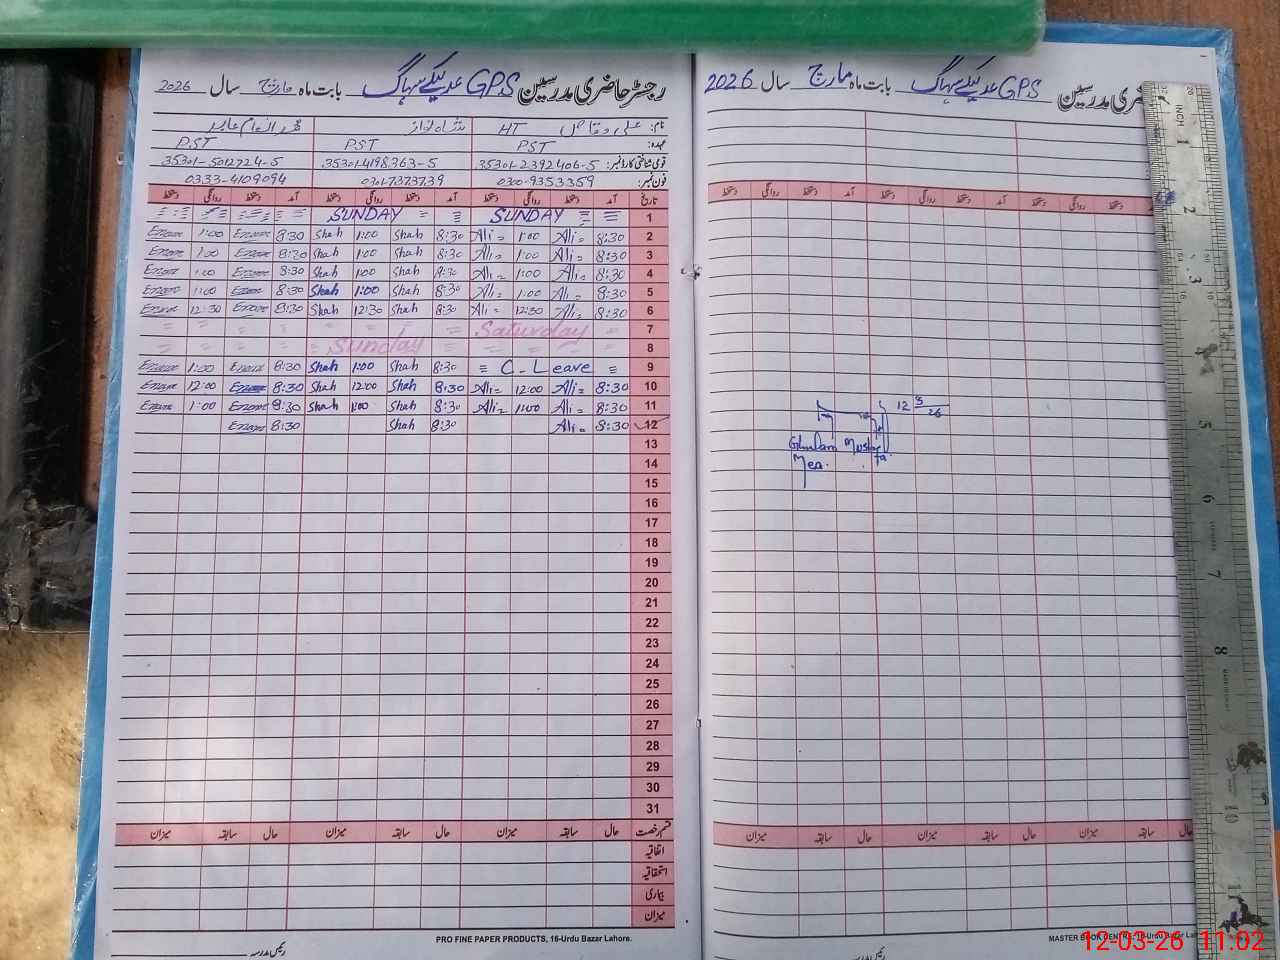 رجسٹر حاضری مدرسین GPS عدیکے سہاگ بابت ماہ مارچ سال 2026
نام: علی وقاص HT شاہ نواز محمد انعام عابد
عہدہ: PST PST PST
قومی شناختی کارڈ نمبر: 35301-2392406-5 35301-4198363-5 35301-5012724-5
فون نمبر: 0300-9353359 0301-7373739 0333-4109094
تاریخ آمد دستخط روانگی دستخط آمد دستخط روانگی دستخط آمد دستخط روانگی دستخط
1 SUNDAY SUNDAY
2 8:30 Ali 1:00 Ali 8:30 Shah 1:00 Shah 8:30 Enam 1:00 Enam
3 8:30 Ali 1:00 Ali 8:30 Shah 1:00 Shah 8:30 Enam 1:00 Enam
4 8:30 Ali 1:00 Ali 8:30 Shah 1:00 Shah 8:30 Enam 1:00 Enam
5 8:30 Ali 1:00 Ali 8:30 Shah 1:00 Shah 8:30 Enam 1:00 Enam
6 8:30 Ali 12:30 Ali 8:30 Shah 12:30 Shah 8:30 Enam 12:30 Enam
7 Saturday
8 Sunday
9 C-Leave 8:30 Shah 1:00 Shah 8:30 Enam 1:00 Enam
10 8:30 Ali 12:00 Ali 8:30 Shah 12:00 Shah 8:30 Enam 12:00 Enam
11 8:30 Ali 1:00 Ali 8:30 Shah 1:00 Shah 8:30 Enam 1:00 Enam
12 8:30 Ali 8:30 Shah 8:30 Enam
13
14
15
16
17
18
19
20
21
22
23
24
25
26
27
28
29
30
31
قسم رخصت حال سابقہ میزان حال سابقہ میزان حال سابقہ میزان
اتفاقیہ
استحقاقیہ
بیماری
میزان
PRO FINE PAPER PRODUCTS, 16-Urdu Bazar Lahore.
رئیس مدرسہ
حاضری مدرسین GPS عدیکے سہاگ بابت ماہ مارچ سال 2026
دستخط روانگی دستخط آمد دستخط روانگی دستخط آمد دستخط روانگی
12 3/26
Ghulam Mustafa
Mea.
حال سابقہ میزان حال سابقہ میزان حال سابقہ میزان
MASTER BOOK CENTRE, 16-Urdu Bazar Lah
رئیس مدرسہ
INCH
1
2
3
5
6
7
8
10
11
12-03-26 11:02